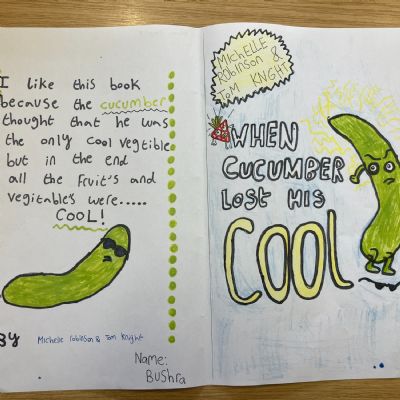 I like this book
because the cucumber
thought that he was
the only cool vegtible
but in the end
all the fruit's and
vegitable's were.....
COOL!
By Michelle robinson & Tom Knight
Name:
BUShra
MICHELLE
RObINSON &
ToM KNGHT
WHEN
CUCUMBER
LoSt HIS
COOL